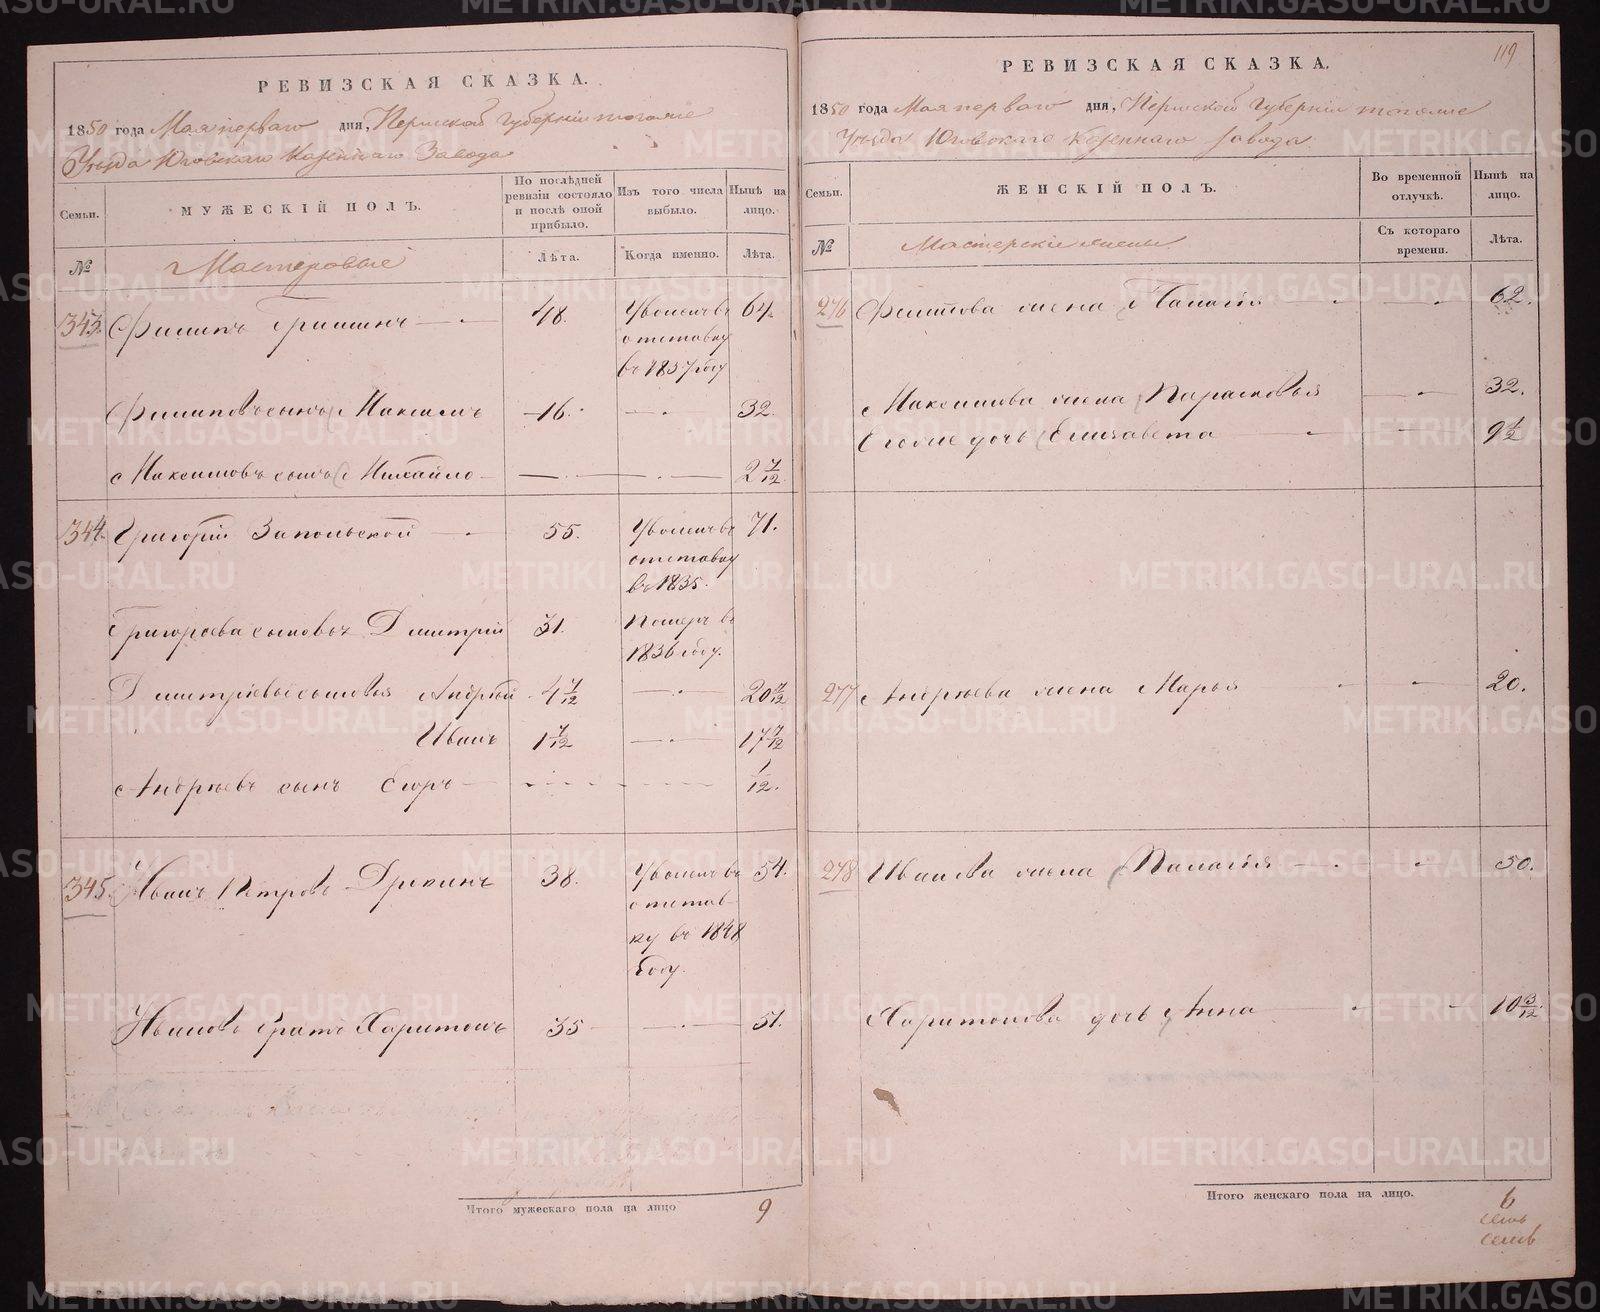 РЕВИЗСКАЯ СКАЗКА.
1850 года Мая перваго дня, Пермской Губернии тогоже
Уѣзда Юговскаго Казеннаго Завода
Семьи. МУЖЕСКІЙ ПОЛЪ. По послѣдней ревизіи состояло и послѣ оной прибыло. Изъ того числа выбыло. Нынѣ на лицо.
№ Мастеровые Лѣта. Когда именно. Лѣта.
343. Филипъ Гришинъ 48. Уволенъ въ отставку въ 1837 году 64.
Филиповъ сынъ Максимъ 16. 32.
Максимовъ сынъ Михайло 2 7/12.
344. Григорій Запольской 55. Уволенъ въ отставку въ 1835. 71.
Григорьева сыновья Дмитрій 31. Померъ въ 1836 году.
Дмитріевы сыновья Андрей 4 7/12 20 7/12
Иванъ 1 7/12 17 7/12
Андреевъ сынъ Егоръ 1/12.
345. Иванъ Петровъ 38. Уволенъ въ отставку въ 1848 году. 54.
Ивановъ братъ Харитонъ 35 51.
Итого мужескаго пола на лицо 9
119
РЕВИЗСКАЯ СКАЗКА.
1850 года Мая перваго дня, Пермской Губерніи тогоже
Уѣзда Юговскаго Казеннаго Завода.
Семьи. ЖЕНСКІЙ ПОЛЪ. Во временной отлучкѣ. Нынѣ на лицо.
№ Мастерскіе жены Съ котораго времени. Лѣта.
276 Филипова жена Палагія 62.
Максимова жена Парасковья 32.
Егоже дочь Елизавета 9 1/2
277 Андреева жена Марья 20.
278 Иванова жена Палагія 50.
Харитонова дочь Анна 10 3/12.
Итого женскаго пола на лицо. 6
METRIKI.GASO-URAL.RU